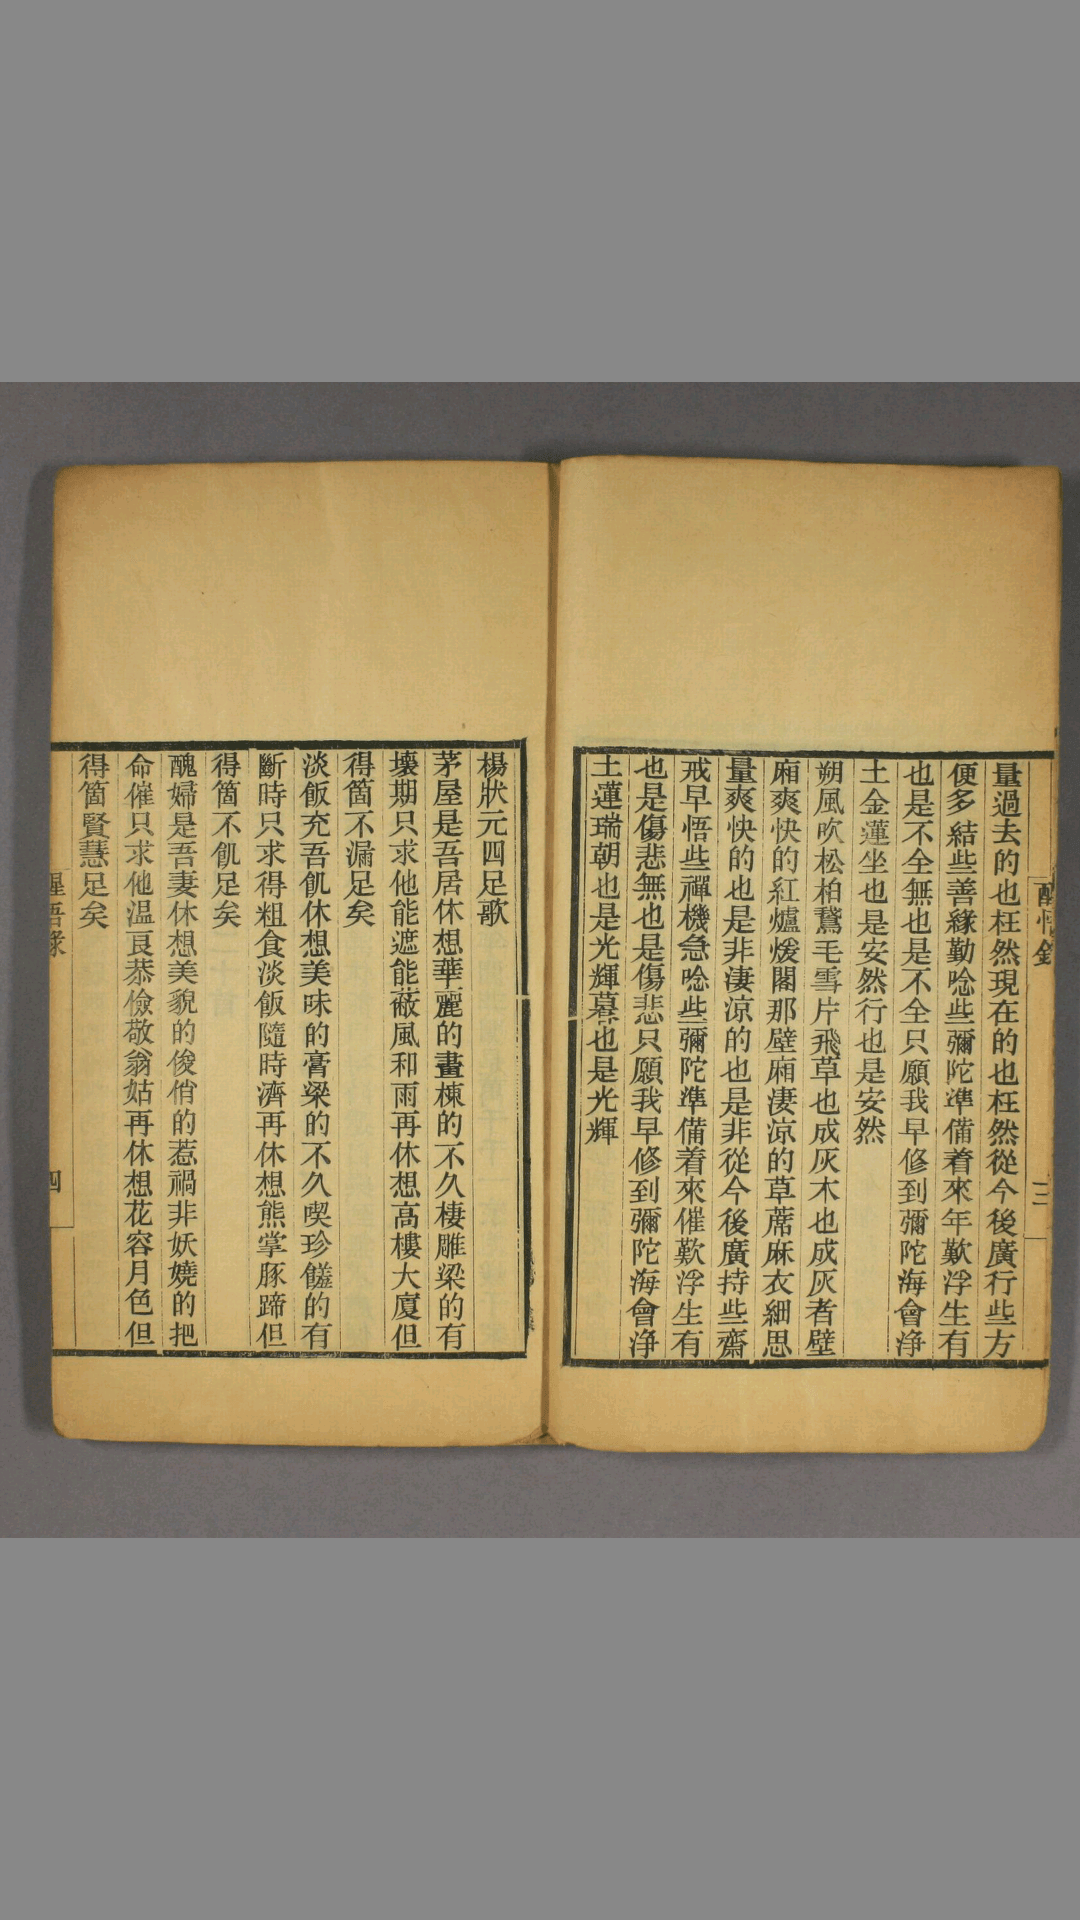 醒悟錄
三
量過去的也枉然現在的也枉然從今後廣行些方
便多結些善緣勤唸些彌陀準備着來年歎浮生有
也是不全無也是不全只願我早修到彌陀海會浄
土金蓮坐也是安然行也是安然
朔風吹松柏鵞毛雪片飛草也成灰木也成灰者壁
廂爽快的紅爐煖閣那壁廂淒涼的草蓆麻衣細思
量爽快的也是非淒涼的也是非從今後廣持些齋
戒早悟些禪機急唸些彌陀準備着來催歎浮生有
也是傷悲無也是傷悲只願我早修到彌陀海會浄
土蓮瑞朝也是光輝暮也是光輝
楊狀元四足歌
茅屋是吾居休想華麗的畫棟的不久棲雕梁的有
壞期只求他能遮能蔽風和雨再休想高樓大廈但
得箇不漏足矣
淡飯充吾飢休想美味的膏粱的不久喫珍饈的有
斷時只求得粗食淡飯隨時濟再休想熊掌豚蹄但
得箇不飢足矣
醜婦是吾妻休想美貌的俊俏的惹禍非妖嬈的把
命催只求他温良恭儉敬翁姑再休想花容月色但
得箇賢慧足矣
醒悟錄
四